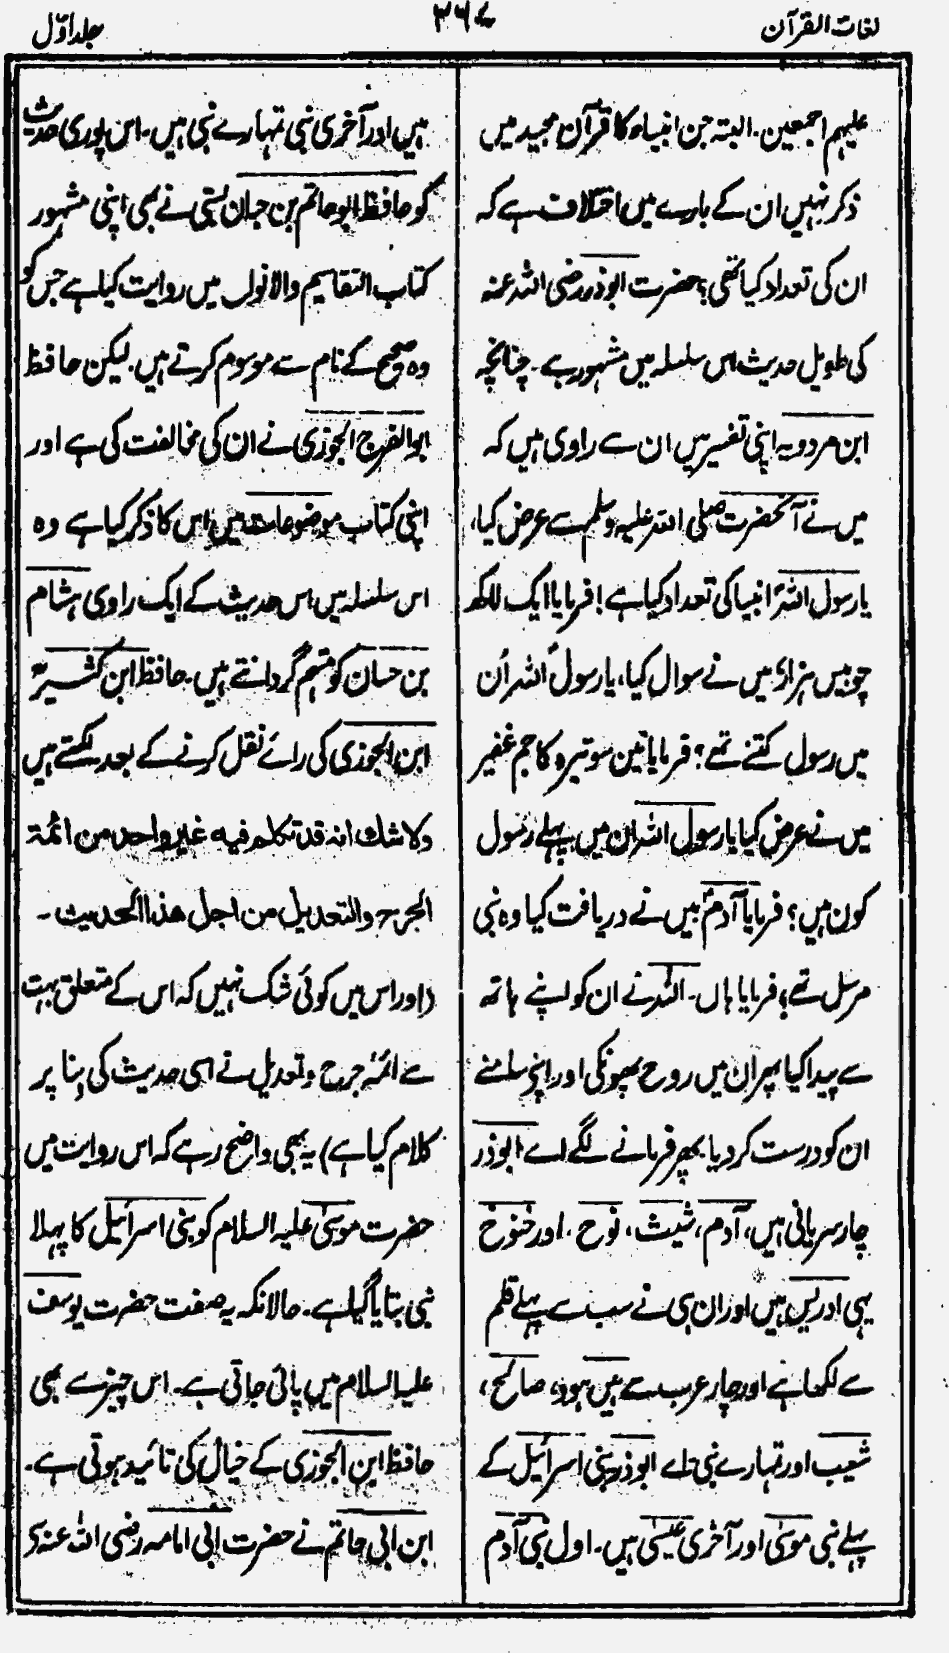 لغات القرآن
۳۶۷
جلد اوّل
علیہم اجمعین۔ البتہ جن انبیاء کا قرآن مجید میں
ذکر نہیں ان کے بارے میں اختلاف ہے کہ
ان کی تعداد کیا تھی؟ حضرت ابوذر رضی اللہ عنہ
کی طویل حدیث اس سلسلہ میں مشہور ہے۔ چنانچہ
ابن مردویہ اپنی تفسیر میں ان سے راوی ہیں کہ
میں نے آنحضرت صلی اللہ علیہ وسلم سے عرض کیا،
یا رسول اللہؐ انبیا کی تعداد کیا ہے! فرمایا ایک لاکھ
چوبیس ہزار، میں نے سوال کیا، یا رسول اللہؐ ان
میں رسول کتنے تھے؟ فرمایا تین سو تیرہ کا جم غفیر
میں نے عرض کیا یا رسول اللہ ان میں پہلے رسول
کون ہیں؟ فرمایا آدمؑ میں نے دریافت کیا وہ نبی
مرسل تھے؟ فرمایا ہاں۔ اللہ نے ان کو اپنے ہاتھ
سے پیدا کیا پھر ان میں روح پھونکی اور اپنے سامنے
ان کو درست کر دیا پھر فرمانے لگے اے ابوذر
چار سریانی ہیں، آدم، شیث، نوح، اور خنوخ
یہی ادریس ہیں اور ان ہی نے سب سے پہلے قلم
سے لکھا ہے اور چار عرب سے ہیں ہود، صالح،
شعیب اور تمہارے نبی اے ابوذر بنی اسرائیل کے
پہلے نبی موسیٰ اور آخری عیسیٰ ہیں۔ اول نبی آدم
ہیں اور آخری نبی تمہارے نبی ہیں۔ اس پوری حدیث
کو حافظ ابو حاتم بن حبان بستی نے بھی اپنی مشہور
کتاب التقاسیم والانواع میں روایت کیا ہے جس کو
وہ صحیح کے نام سے موسوم کرتے ہیں۔ لیکن حافظ
ابو الفرج الجوزی نے ان کی مخالفت کی ہے اور
اپنی کتاب موضوعات میں اس کا ذکر کیا ہے وہ
اس سلسلہ میں اس حدیث کے ایک راوی ہشام
بن حسان کو متہم گردانتے ہیں۔ حافظ ابن کثیرؒ
ابن الجوزی کی رائے نقل کرنے کے بعد لکھتے ہیں
ولا شك انه قد تكلم فيه غير واحد من ائمة
الجرح والتعديل من اجل هذا الحديث۔
(اور اس میں کوئی شک نہیں کہ اس کے متعلق بہت
سے ائمہ جرح و تعدیل نے اسی حدیث کی بنا پر
کلام کیا ہے) یہ بھی واضح رہے کہ اس روایت میں
حضرت موسیٰ علیہ السلام کو بنی اسرائیل کا پہلا
نبی بتایا گیا ہے۔ حالانکہ یہ صفت حضرت یوسف
علیہ السلام میں پائی جاتی ہے۔ اس چیز سے بھی
حافظ ابن الجوزی کے خیال کی تائید ہوتی ہے۔
ابن ابی حاتم نے حضرت ابی امامہ رضی اللہ عنہ کی